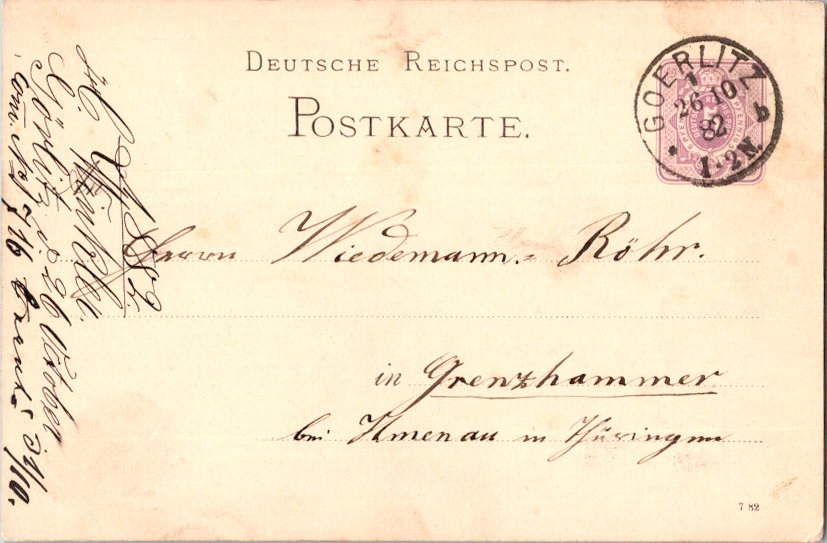 DEUTSCHE REICHSPOST.
POSTKARTE.
GOERLITZ
26 10
82
1-2N.
* b
Herrn Wiedemann-Röhr.
in Grenzhammer
bei Ilmenau in Thüringen
7 82
H 24 882.
Görlitz d. 26 October
16
31/10.